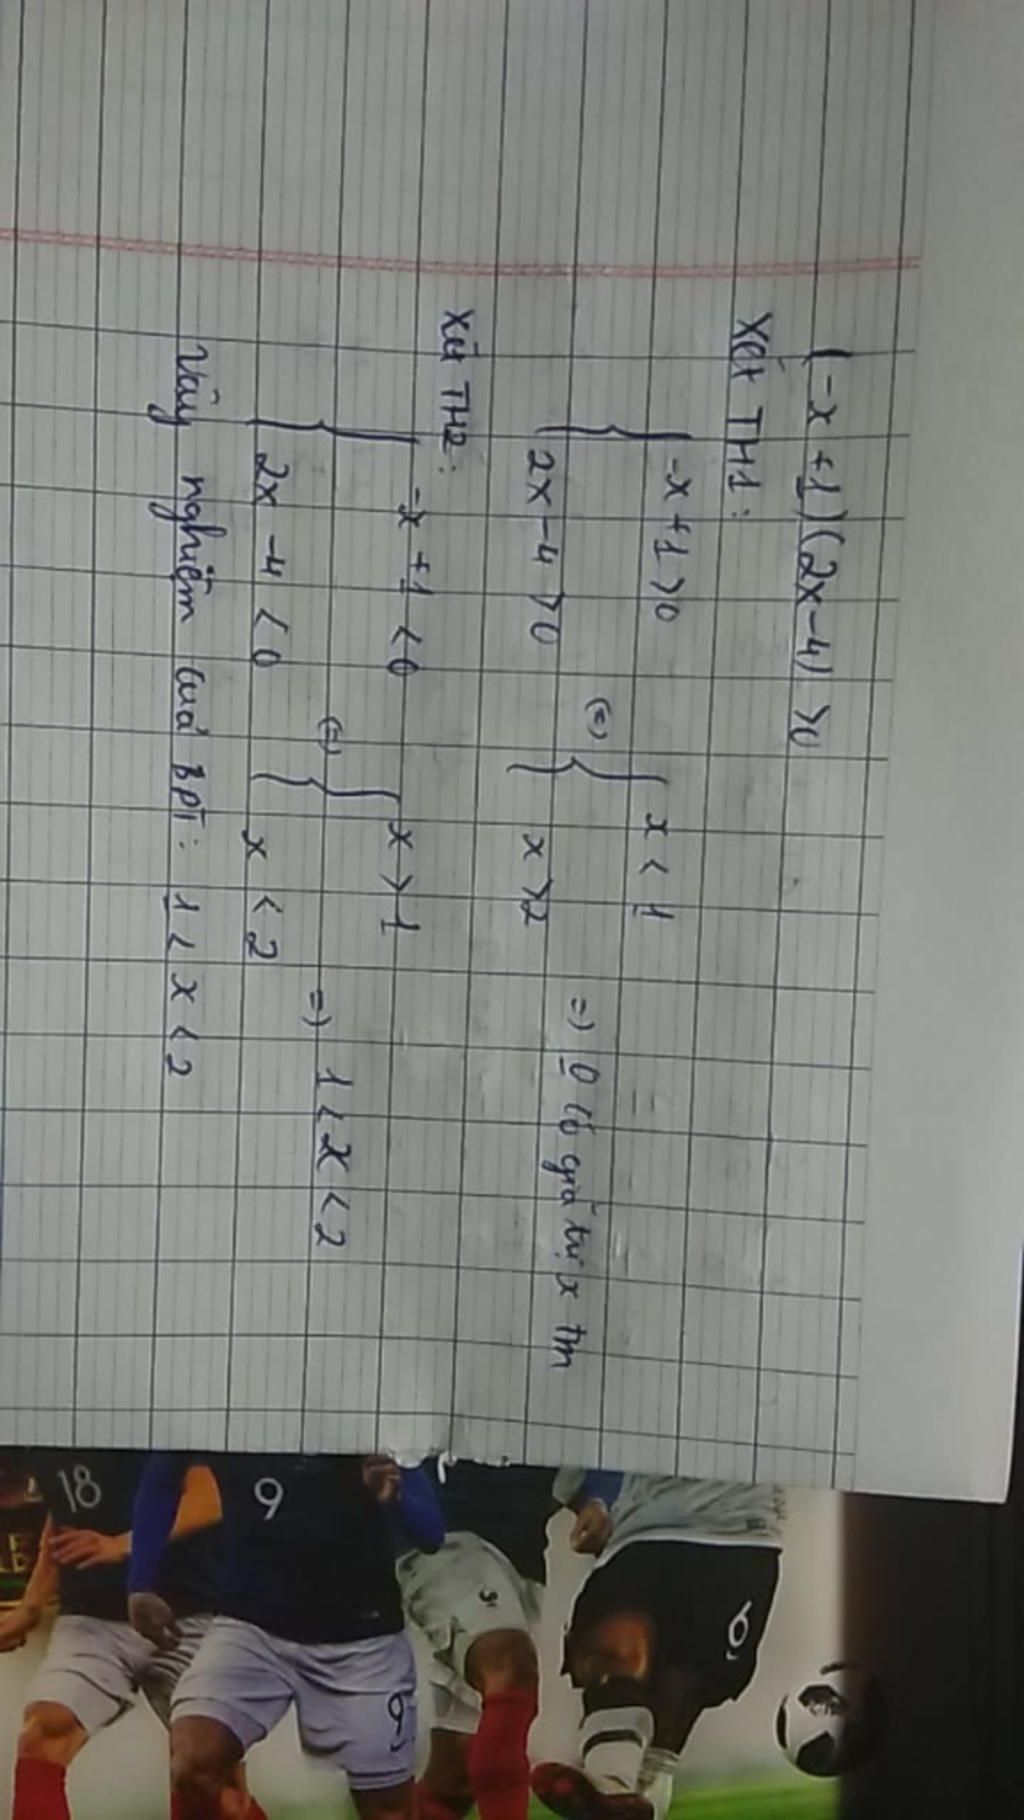 (-x +1)(2x-4) >0
Xét TH1:
{ -x +1 >0 (=) { x < 1
{ 2x -4 >0 { x >2 =) 0 có giá trị x tm
Xét TH2:
{ -x +1 < 0 (=) { x > 1
{ 2x -4 < 0 { x < 2 =) 1 < x < 2
Vậy nghiệm của bpt: 1 < x < 2
18
9
9
9